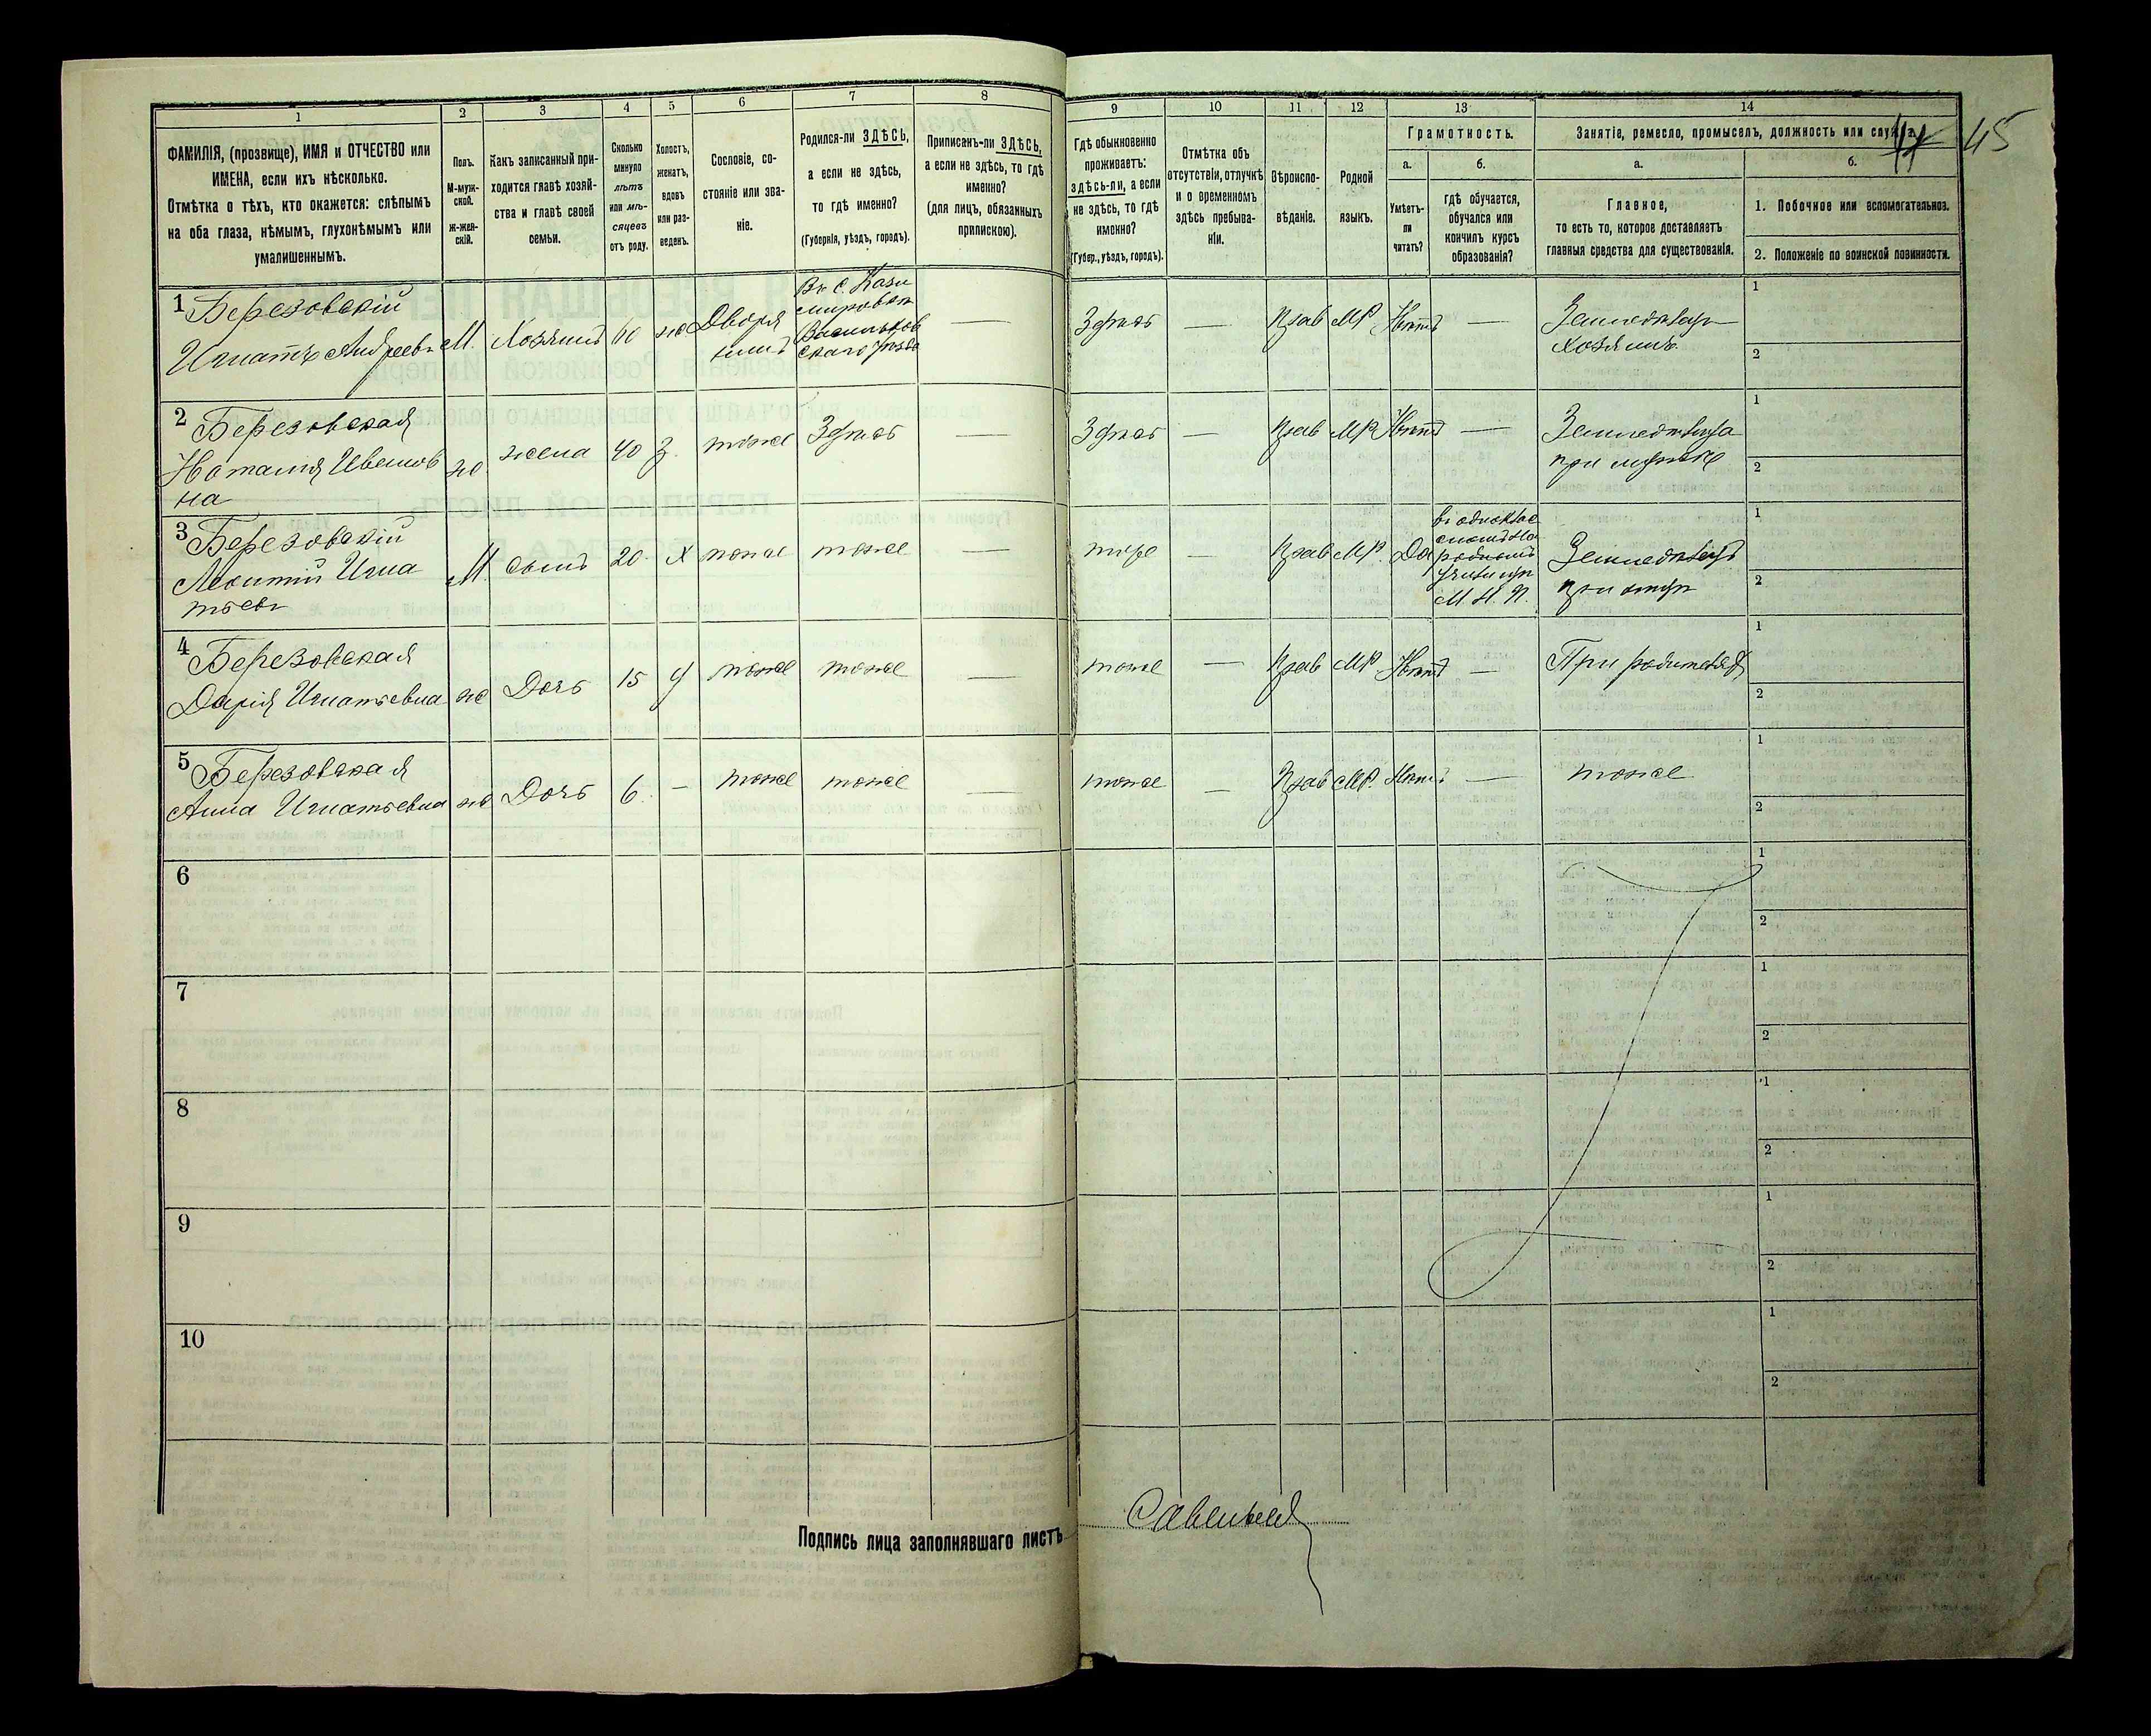 1 2 3 4 5 6 7 8 9 10 11 12 13 14
ФАМИЛІЯ, (прозвище), ИМЯ и ОТЧЕСТВО или
ИМЕНА, если ихъ нѣсколько.
Отмѣтка о тѣхъ, кто окажется: слѣпымъ
на оба глаза, нѣмымъ, глухонѣмымъ или
умалишеннымъ.
Полъ.
М-муж-
ской.
ж-жен-
скій.
Какъ записанный при-
ходится главѣ хозяй-
ства и главѣ своей
семьи.
Сколько
минуло
лѣтъ
или мѣ-
сяцевъ
отъ роду.
Холостъ,
женатъ,
вдовъ
или раз-
веденъ.
Сословіе, со-
стояніе или зва-
ніе.
Родился-ли ЗДѢСЬ,
а если не здѣсь,
то гдѣ именно?
(Губернія, уѣздъ, городъ).
Приписанъ-ли ЗДѢСЬ,
а если не здѣсь, то гдѣ
именно?
(для лицъ, обязанныхъ
припискою).
Гдѣ обыкновенно
проживаетъ:
здѣсь-ли, а если
не здѣсь, то гдѣ
именно?
(Губер., уѣздъ, городъ).
Отмѣтка объ
отсутствіи, отлучкѣ
и о временномъ
здѣсь пребыва-
ніи.
Вѣроиспо-
вѣданіе.
Родной
языкъ.
Грамотность.
а.
Умѣетъ-
ли
читать?
б.
гдѣ обучается,
обучался или
кончилъ курсъ
образованія?
Занятіе, ремесло, промыселъ, должность или служба.
44 45
а.
Главное,
то есть то, которое доставляетъ
главныя средства для существованія.
б.
1. Побочное или вспомогательное.
2. Положеніе по воинской повинности.
1 Березовскій
Игнатъ Андреевъ
М. Хозяинъ 60 ж.
Дворя
нинъ
Въ с. Кази
мировкѣ
Васильков
скаго уѣзда
—
Здѣсь — Прав МР Нѣтъ —
Земледѣлец
хозяинъ.
1
2
2 Березовская
Наталія Иванов
на
ж жена 40 З. тоже Здѣсь —
Здѣсь — Прав МР Нѣтъ —
при мужѣ
1
2
3 Березовскій
Игна
тьевъ
М сынъ 20. Х тоже тоже —
тоже Прав МР. Да
въ однокла
сномъ На
родномъ
училищѣ
М. Н. П.
Земледѣлецъ
при отцѣ
1
2
4 Березовская
Дарія Игнатьевна
ж Дочь 15 тоже тоже —
тоже — Прав МР Нѣтъ —
При родителяхъ
1
2
5 Березовская
Анна Игнатьевна
ж Дочь 6. — тоже тоже —
тоже — Прав МР. Нѣтъ — тоже
1
2
6
1
2
7
1
2
8
1
2
9
1
2
10
1
2
Подпись лица заполнявшаго листъ